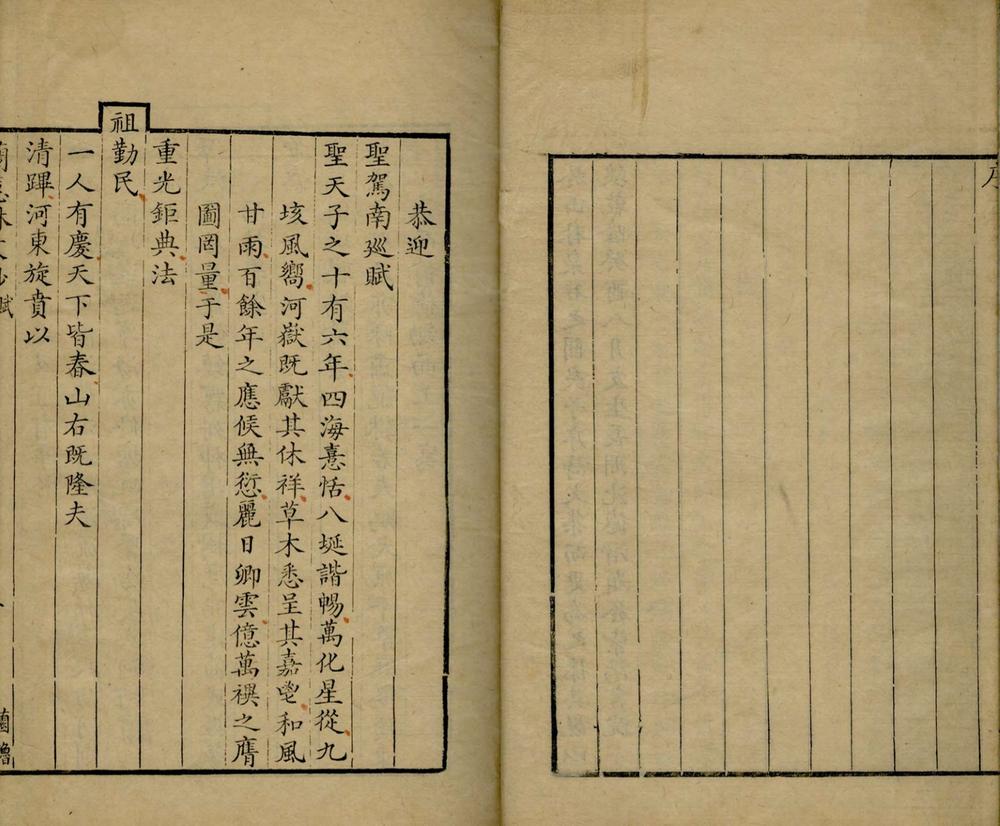 序
恭迎
聖駕南廵賦
聖天子之十有六年四海憙恬八埏諧暢萬化星從九
垓風嚮河嶽旣獻其休祥草木悉呈其嘉㐝和風
甘雨百餘年之應候無愆麗日卿雲億萬禩之膺
圖罔量于是
重光鉅典法
祖勤民
一人有慶天下皆春山右旣隆夫
清蹕河東旋賁以